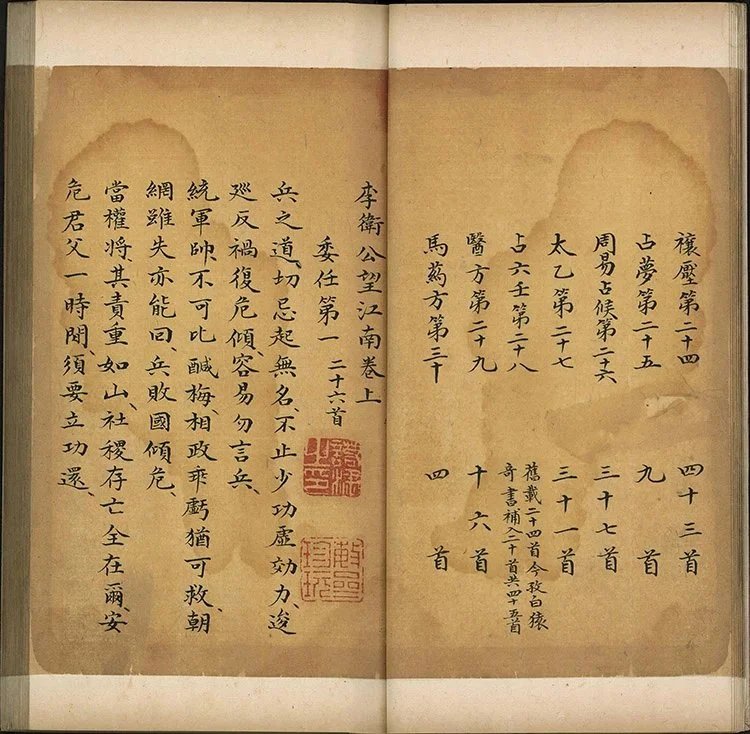 禳壓第二十四 四十三首
占夢第二十五 九首
周易占候第二十六 三十七首
太乙第二十七 三十一首
占六壬第二十八 舊載二十四首今攷白猿
奇書補入二十首共四十五首
醫方第二十九 十六首
馬葯方第三十 四首
李衛公望江南卷上
委任第一 二十六首
兵之道、切忌起無名、不止少功虛効力、逡
廵反禍復危傾、容易勿言兵、
統軍帥、不可比鹹梅、相政乖虧猶可救、朝
網雖失亦能回、兵敗國傾危、
當權將、其責重如山、社稷存亡全在爾、安
危君父一時閒、須要立功還、